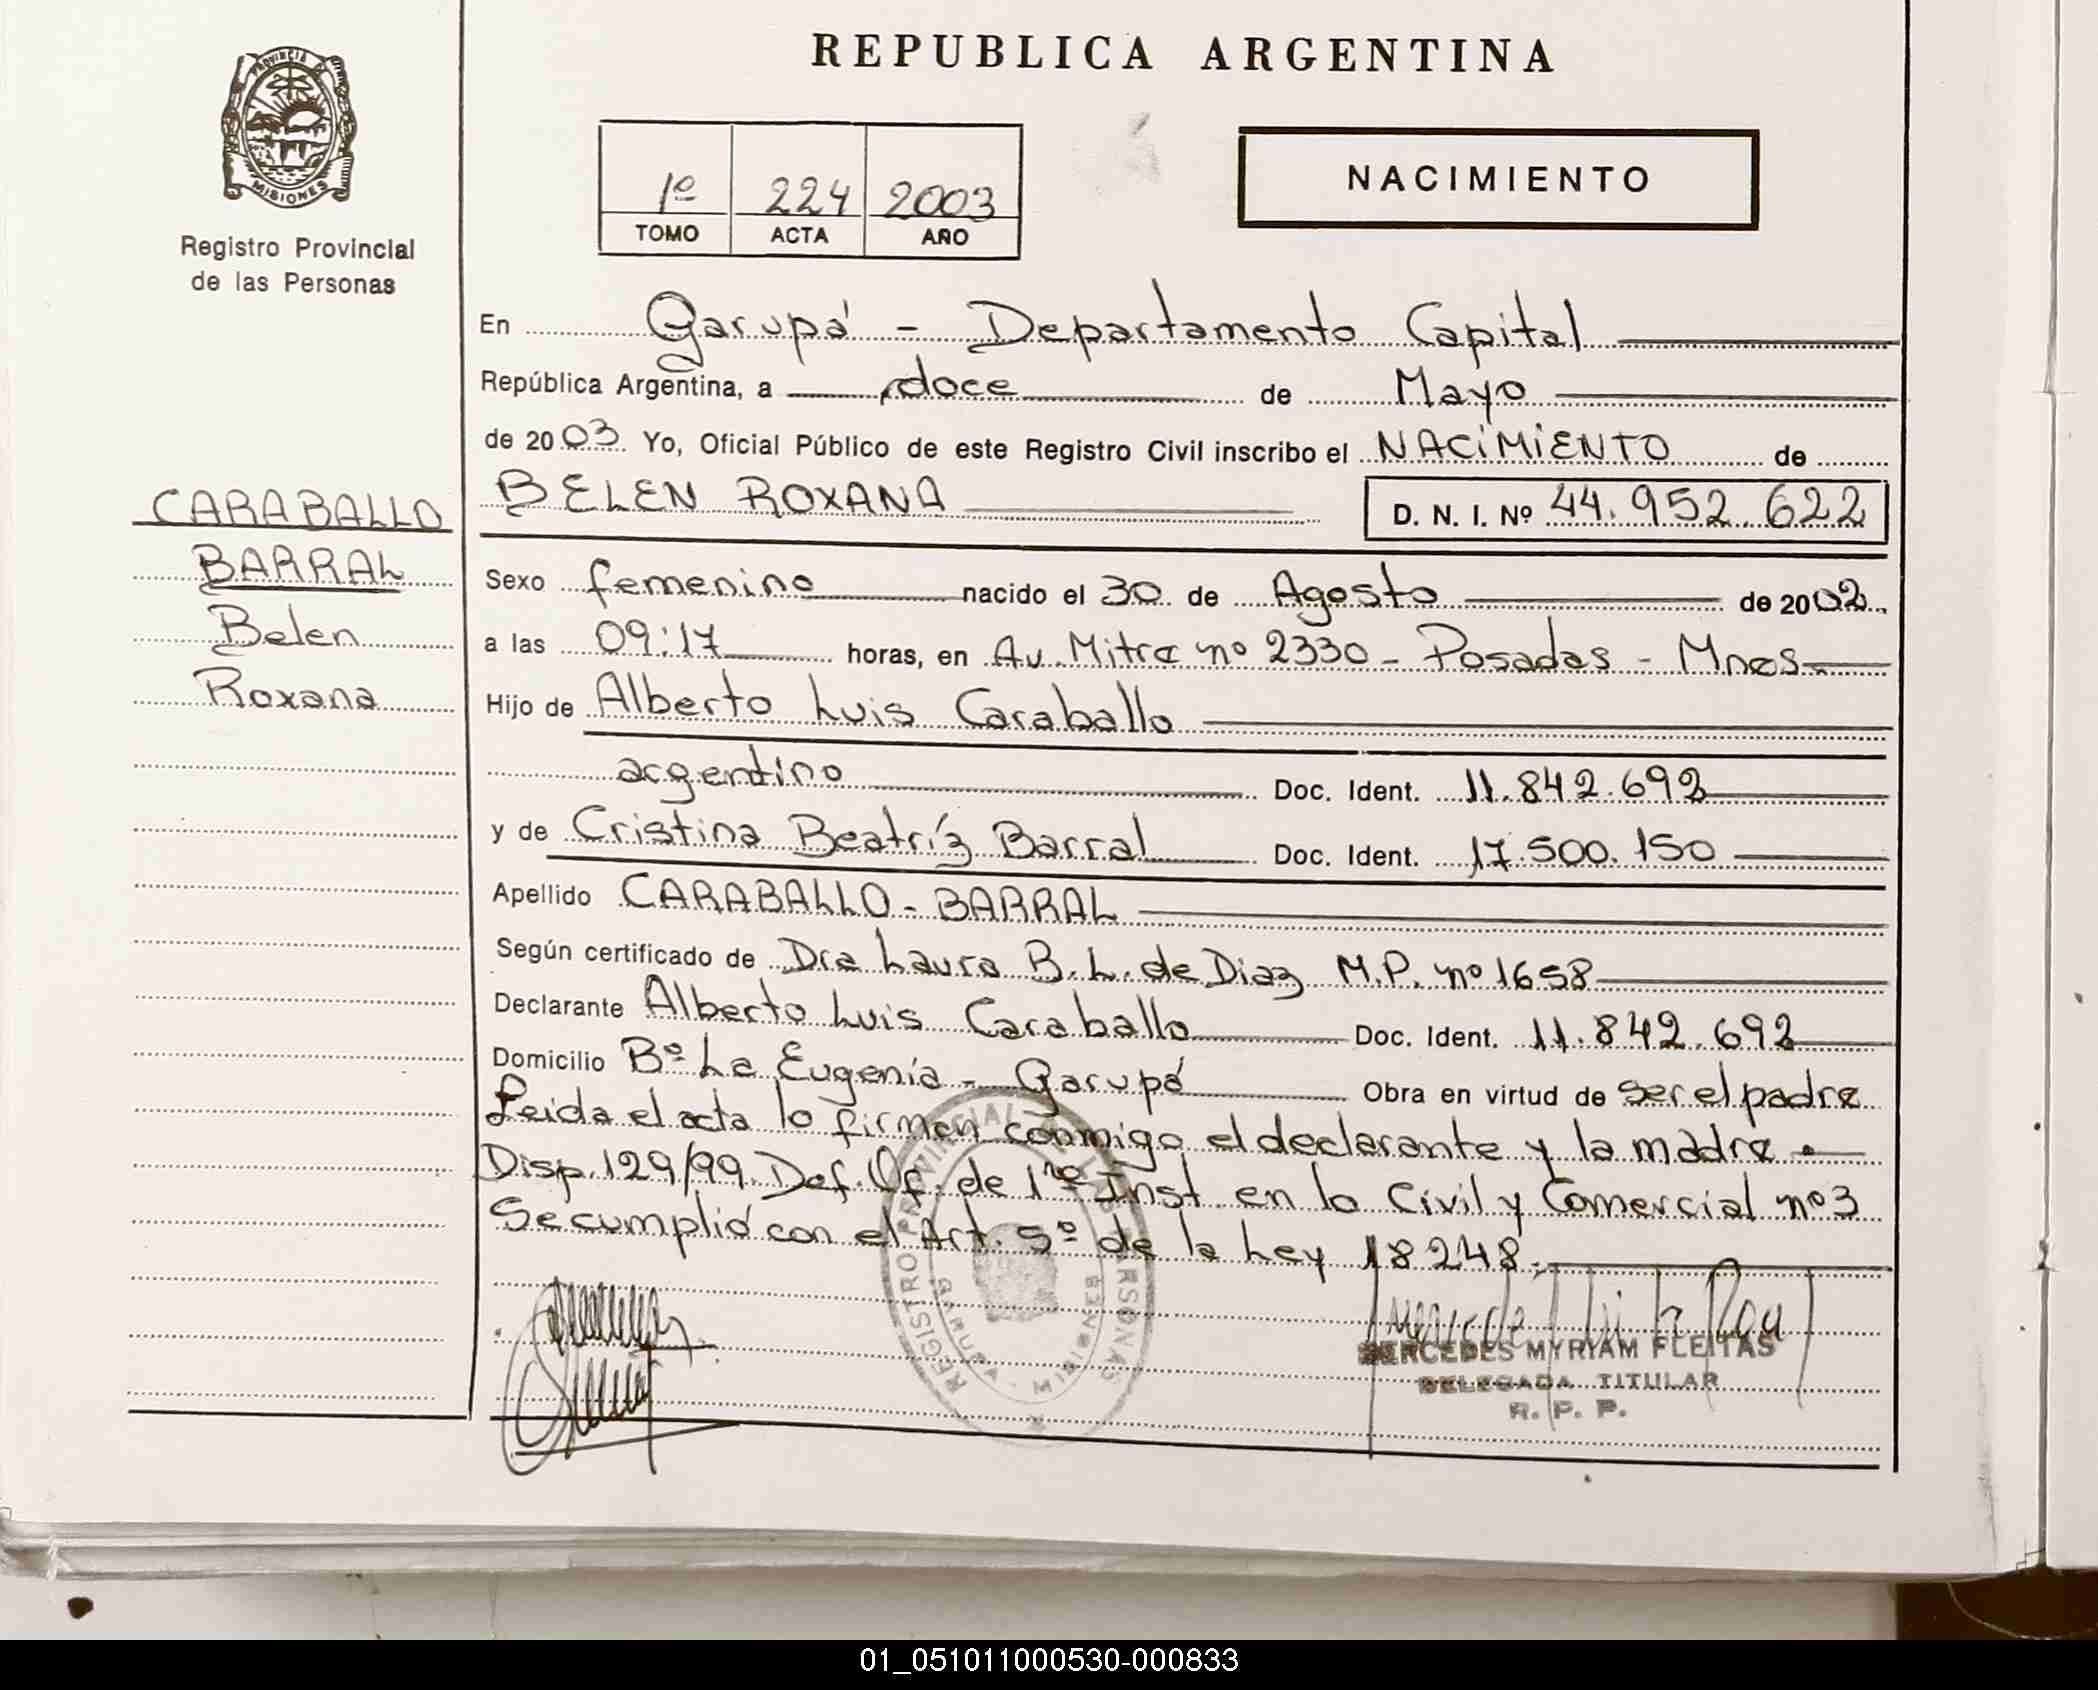 REPUBLICA ARGENTINA
PROVINCIA DE
MISIONES
Registro Provincial
de las Personas
1º 224 2003
TOMO ACTA AÑO
NACIMIENTO
En Garupá - Departamento Capital
República Argentina, a doce de Mayo
de 2003 Yo, Oficial Público de este Registro Civil inscribo el NACIMIENTO de
BELEN ROXANA D. N. I. Nº 44.952.622
CARABALLO
BARRAL
Belen
Roxana
Sexo femenino nacido el 30 de Agosto de 2002
a las 09:17 horas, en Av. Mitre nº 2330 - Posadas - Mnes
Hijo de Alberto Luis Caraballo
argentino Doc. Ident. 11.842.692
y de Cristina Beatríz Barral Doc. Ident. 17.500.150
Apellido CARABALLO - BARRAL
Según certificado de Dra Laura B. L. de Diaz M.P. nº 1658
Declarante Alberto Luis Caraballo Doc. Ident. 11.842.692
Domicilio Bº La Eugenia - Garupá Obra en virtud de ser el padre
Leida el acta lo firman conmigo el declarante y la madre
Disp. 129/99. Def. Of. de 1ra Inst en lo Civil y Comercial nº 3
Se cumplió con el Art. 5º de la Ley 18248
REGISTRO PROVINCIAL DE LAS PERSONAS
GARUPA - MISIONES
MERCEDES MYRIAM FLEITAS
DELEGADA TITULAR
R. P. P.
01_051011000530-000833